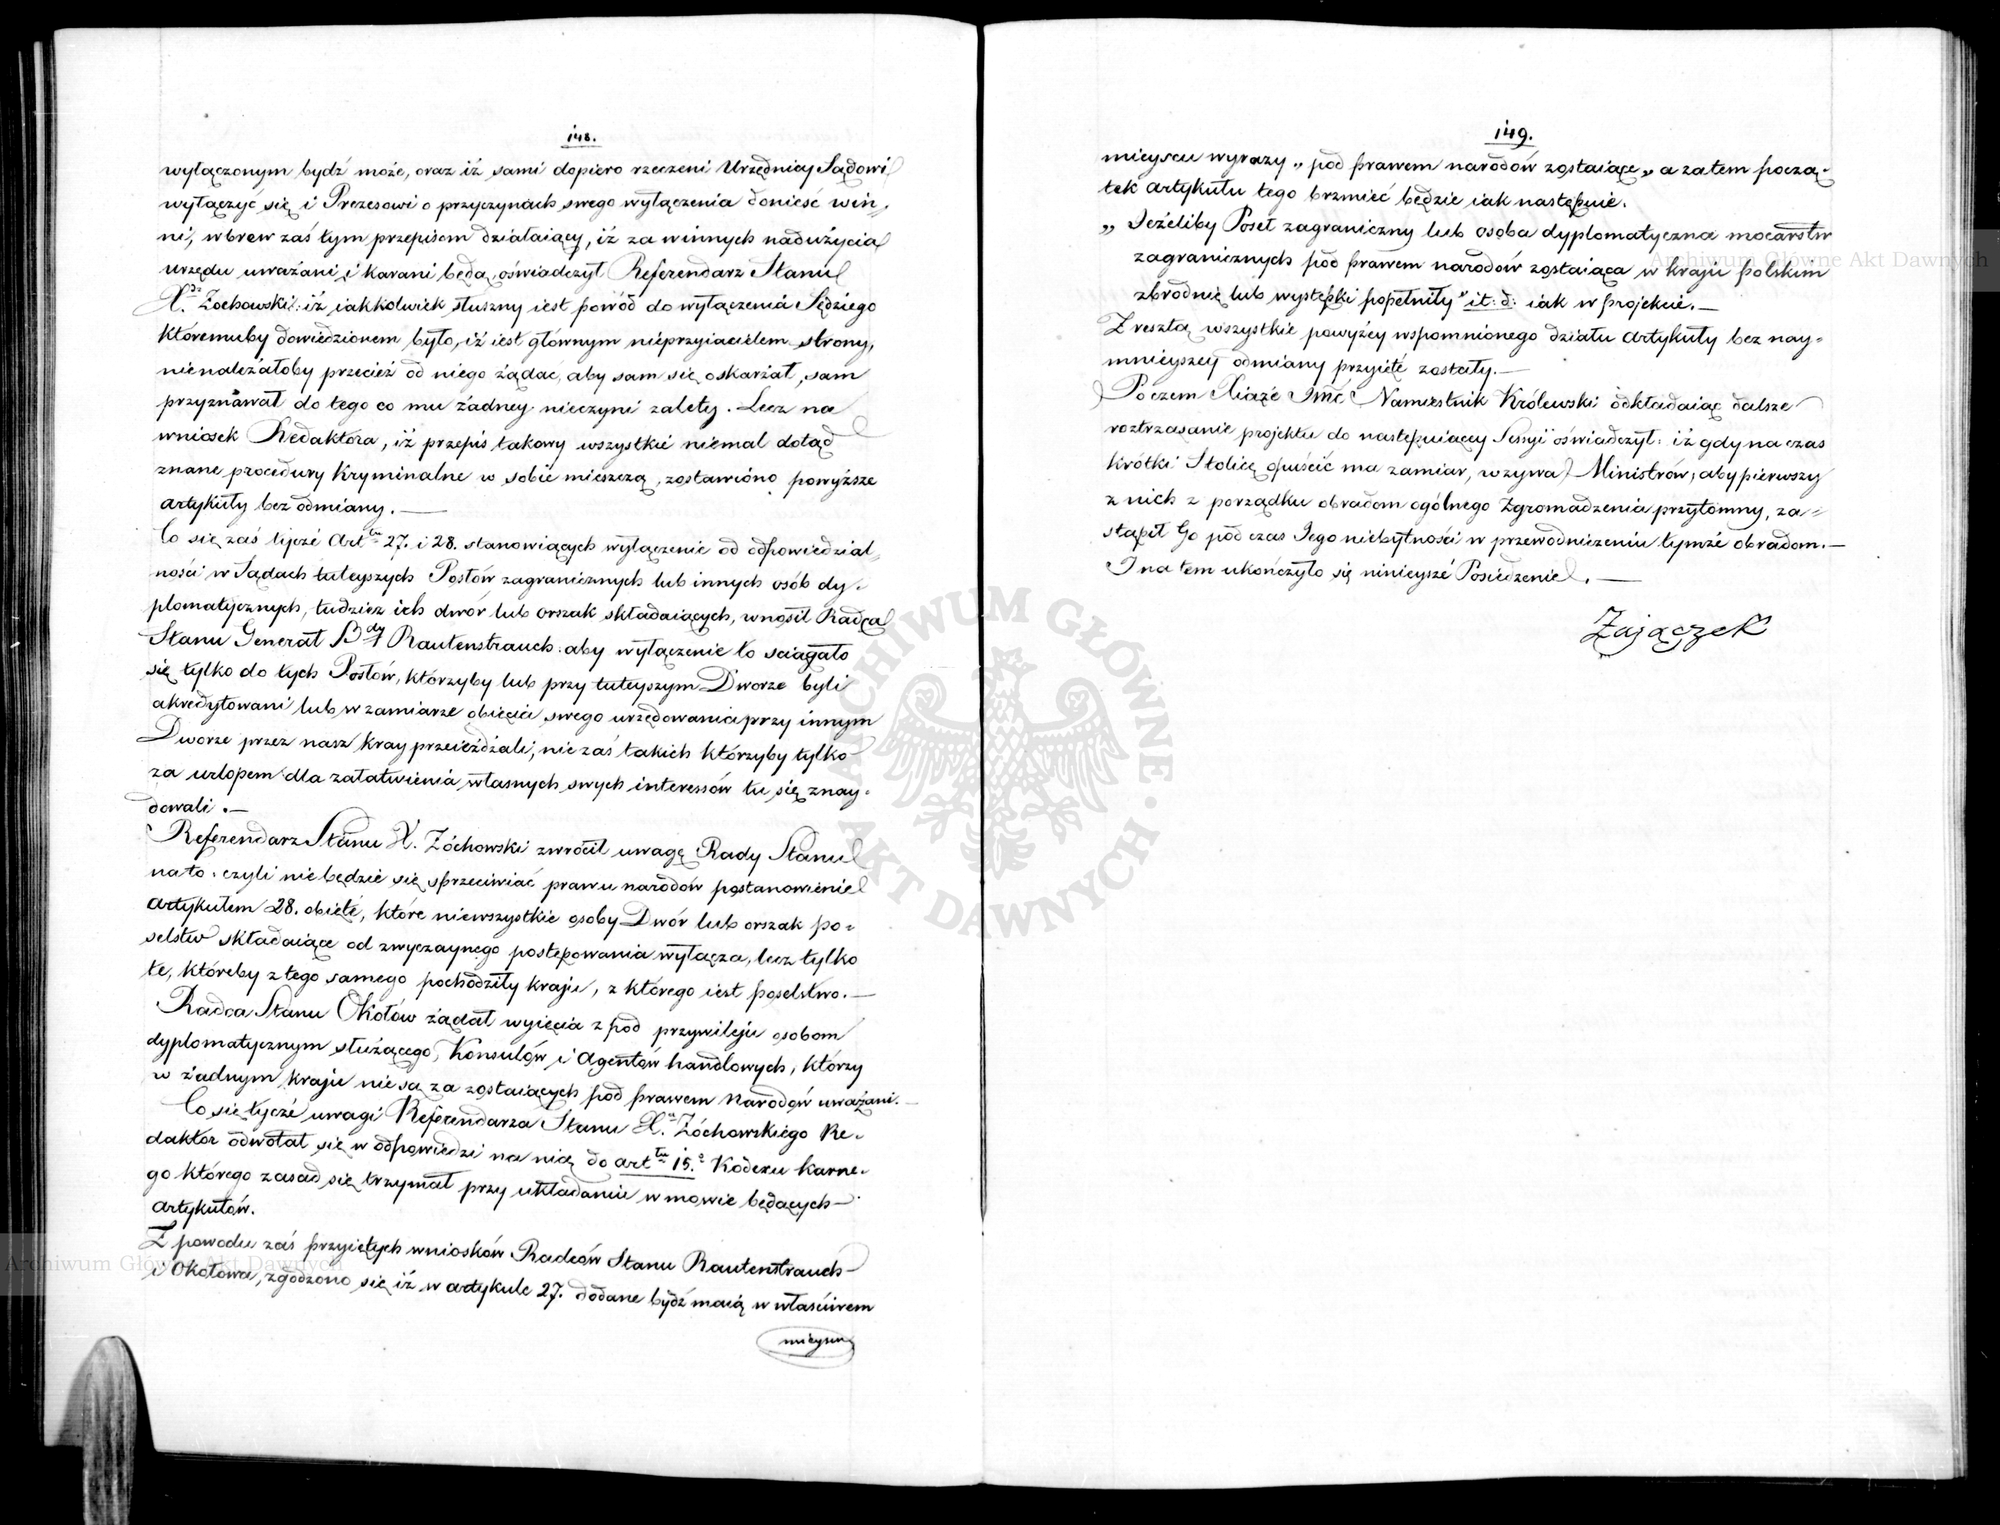 148.
wyłączonym bydź może, oraz iż sami dopiero rzeczeni Urzędnicy Sądowi
wyłączyć się i Prezesowi o przyczynach swego wyłączenia donieść win-
ni, wbrew zaś tym przepisom działaiący, iż za winnych nadużycia
urzędu uważani i karani będą, oświadczył Referendarz Stanu
X.dz Żochowski: iż iakkolwiek słuszny iest powód do wyłączenia Sędziego
któremuby dowiedzionem było, iż iest głównym nieprzyiacielem strony,
nienależałoby przecież od niego żądać, aby sam się oskarżał, sam
przyznawał do tego co mu żadney nieczyni zalety. Lecz na
wniosek Redaktora, iż przepis takowy wszystkie niemal dotąd
znane procedury Kryminalne w sobie mieszczą, zostawiono powyższe
artykuły bez odmiany. —
Co się zaś tycze Arttu 27. i 28. stanowiących wyłączenie od odpowiedzial-
ności w Sądach tuteyszych Posłów zagranicznych lub innych osób dy-
plomatycznych, tudzież ich dwór lub orszak składaiących, wnosił Radca
Stanu Generał Bdy Rautenstrauch: aby wyłączenie to sciągało
się tylko do tych Posłów, którzyby lub przy tuteyszym Dworze byli
akredytowani lub w zamiarze obięcia swego urzędowania przy innym
Dworze przez nasz kray przeieżdżali, nie zaś takich którzyby tylko
za urlopem dla załatwienia własnych swych interessów tu się znay-
dowali. —
Referendarz Stanu X. Żóchowski zwrócił uwagę Rady Stanu
na to: czyli nie będzie się sprzeciwiać prawu narodów postanowienie
artykułem 28. obięte, które niewszystkie osoby Dwór lub orszak po-
selstw składaiące od zwyczaynego postępowania wyłącza, lecz tylko
te, któreby z tego samego pochodziły kraju, z którego iest poselstwo. —
Radca Stanu Okołów żądał wyięcia z pod przywileju osobom
dyplomatycznym służącego, Konsulów i Agentów handlowych, którzy
w żadnym kraju nie są za zostaiących pod prawem Narodów uważani. —
Co się tycze uwagi Referendarza Stanu X.a Żóchowskiego Re-
daktor odwołał się w odpowiedzi na nią do arttu 15.o Kodexu karne-
go którego zasad się trzymał przy układaniu w mowie będących
artykułów.
Z powodu zaś przyiętych wniosków Radców Stanu Rautenstrauch
i Okołowa, zgodzono się iż w artykule 27. dodane bydź maią w właściwem
mieyscu
149.
mieyscu wyrazy „ pod prawem narodów zostaiące „ a zatem począ-
tek artykułu tego brzmieć będzie iak następuie.
„ Jeżeliby Poseł zagraniczny lub osoba dyplomatyczna mocarstw
zagranicznych pod prawem narodów zostaiąca w kraju polskim
zbrodnię lub występki popełniły" it: d: iak w projekcie. —
Z resztą wszystkie powyżey wspomnionego działu artykuły bez nay-
mnieyszey odmiany przyięte zostały. —
Poczem Xiąże Jmć Namiestnik Królewski odkładaiąc dalsze
roztrząsanie projektu do następuiącey Sessyi oświadczył: iż gdy na czas
krótki Stolicę opuścić ma zamiar, wzywa Ministrów, aby pierwszy
z nich z porządku obradom ogólnego Zgromadzenia przytomny, za-
stąpił Go pod czas Jego niebytności w przewodniczeniu tymże obradom. —
I na tem ukończyło się ninieysze Posiedzenie. —
Zajączek
ARCHIWUM GŁÓWNE AKT DAWNYCH
Archiwum Główne Akt Dawnych
Archiwum Główne Akt Dawnych